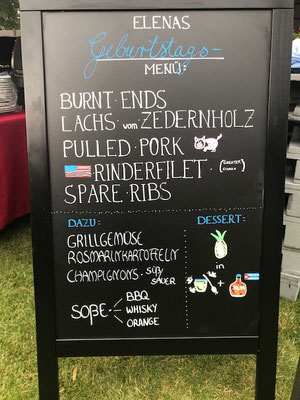 ELENAS
Geburtstags-
MENÜ:
BURNT · ENDS
LACHS vom ZEDERNHOLZ
PULLED · PORK
RINDERFILET ·
SPARE · RIBS
DAZU:
GRILLGEMÜSE
ROSMARINKARTOFFELN
CHAMPIGNONS · süß/
SAUER
SOßE
BBQ
WHISKY
ORANGE
DESSERT:
in
+